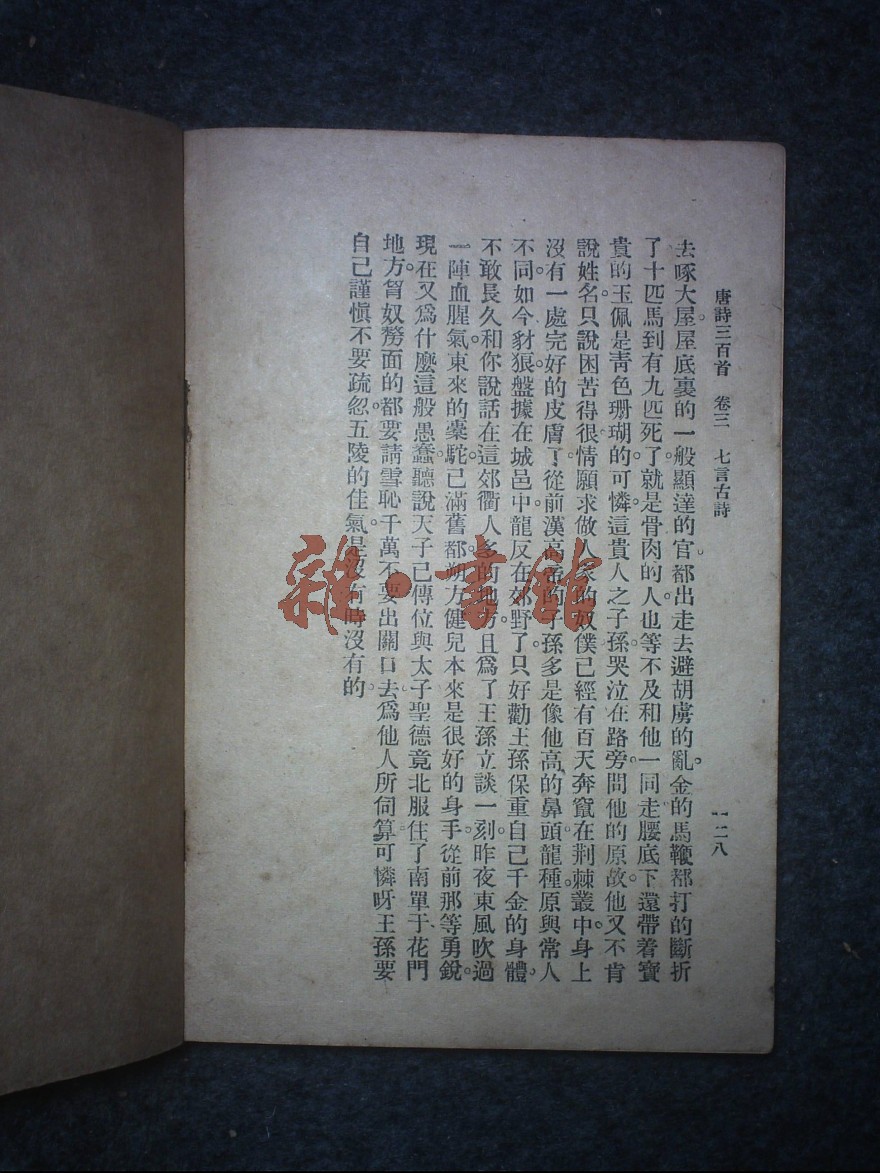 唐詩三百首　卷三　七言古詩
一二八
去啄大屋。屋底裏的一般顯達的官。都出走去避胡虜的亂。金的馬鞭都打的斷折
了。十匹馬到有九匹死了。就是骨肉的人。也等不及和他一同走。腰底下還帶着寶
貴的玉佩。是青色珊瑚的。可憐這貴人之子孫。哭泣在路旁。問他的原故。他又不肯
說姓名。只說困苦得很。情願求做人家的奴僕。已經有百天奔竄在荆棘叢中。身上
沒有一處完好的皮膚了。從前漢高帝的子孫。多是像他高的鼻頭。龍種原與常人
不同。如今豺狼盤據在城邑中。龍反在郊野了。只好勸王孫保重自己千金的身體。
不敢長久和你說話在這郊衢人多的地方。且爲了王孫立談一刻。昨夜東風吹過
一陣血腥氣。東來的橐駝。已滿舊都。朔方健兒本來是很好的身手。從前那等勇銳。
現在又爲什麼這般愚蠢。聽說天子已傳位與太子。聖德竟北服住了南單于。花門
地方。奴剺面的都要請雪恥。千萬不要出關口去。爲他人所伺算。可憐呀王孫。要
自己謹愼不要疏忽。五陵的佳氣。是沒有時沒有的。
雜·書館